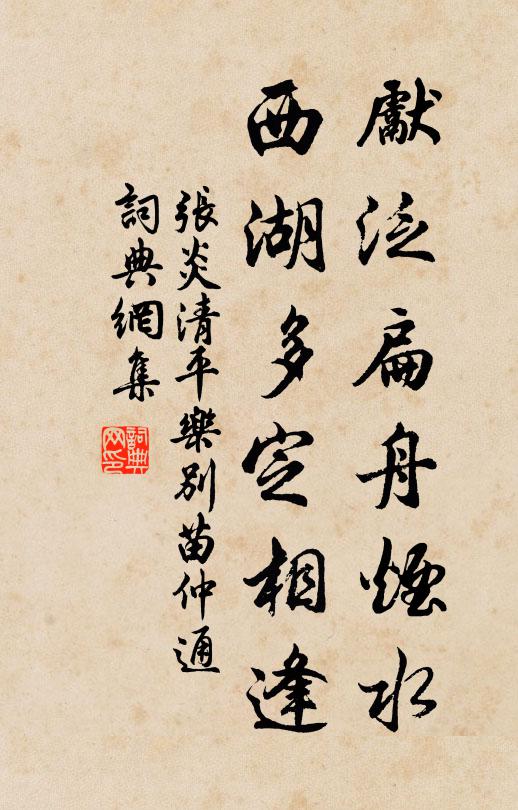 獻泛扁舟煙水
西湖多定相逢
張炎清平樂別苗仲通
詞典網集
詞典
网印